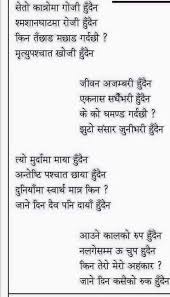 सेतो कात्रोमा गोजी हुँदैन
श्मशानघाटमा रोजी हुँदैन
किन तँछाड मछाड गर्दछौ ?
मृत्युपश्चात खोजी हुँदैन
जीवन अजम्बरी हुँदैन
एकनास सधैँभरी हुँदैन
के को घमण्ड गर्दछौ ?
झुटो संसार जुनीभरी हुँदैन
त्यो मुर्दामा माया हुँदैन
अन्तेष्टि पश्चात छाया हुँदैन
दुनियाँमा स्वार्थ मात्र किन ?
जाने दिन दैव पनि दायाँ हुँदैन
आउने कालको रुप हुँदैन
नलगेसम्म ऊ चुप हुँदैन
किन तेरो मेरो अहंकार ?
जाने दिन कसैको रुक हुँदैन